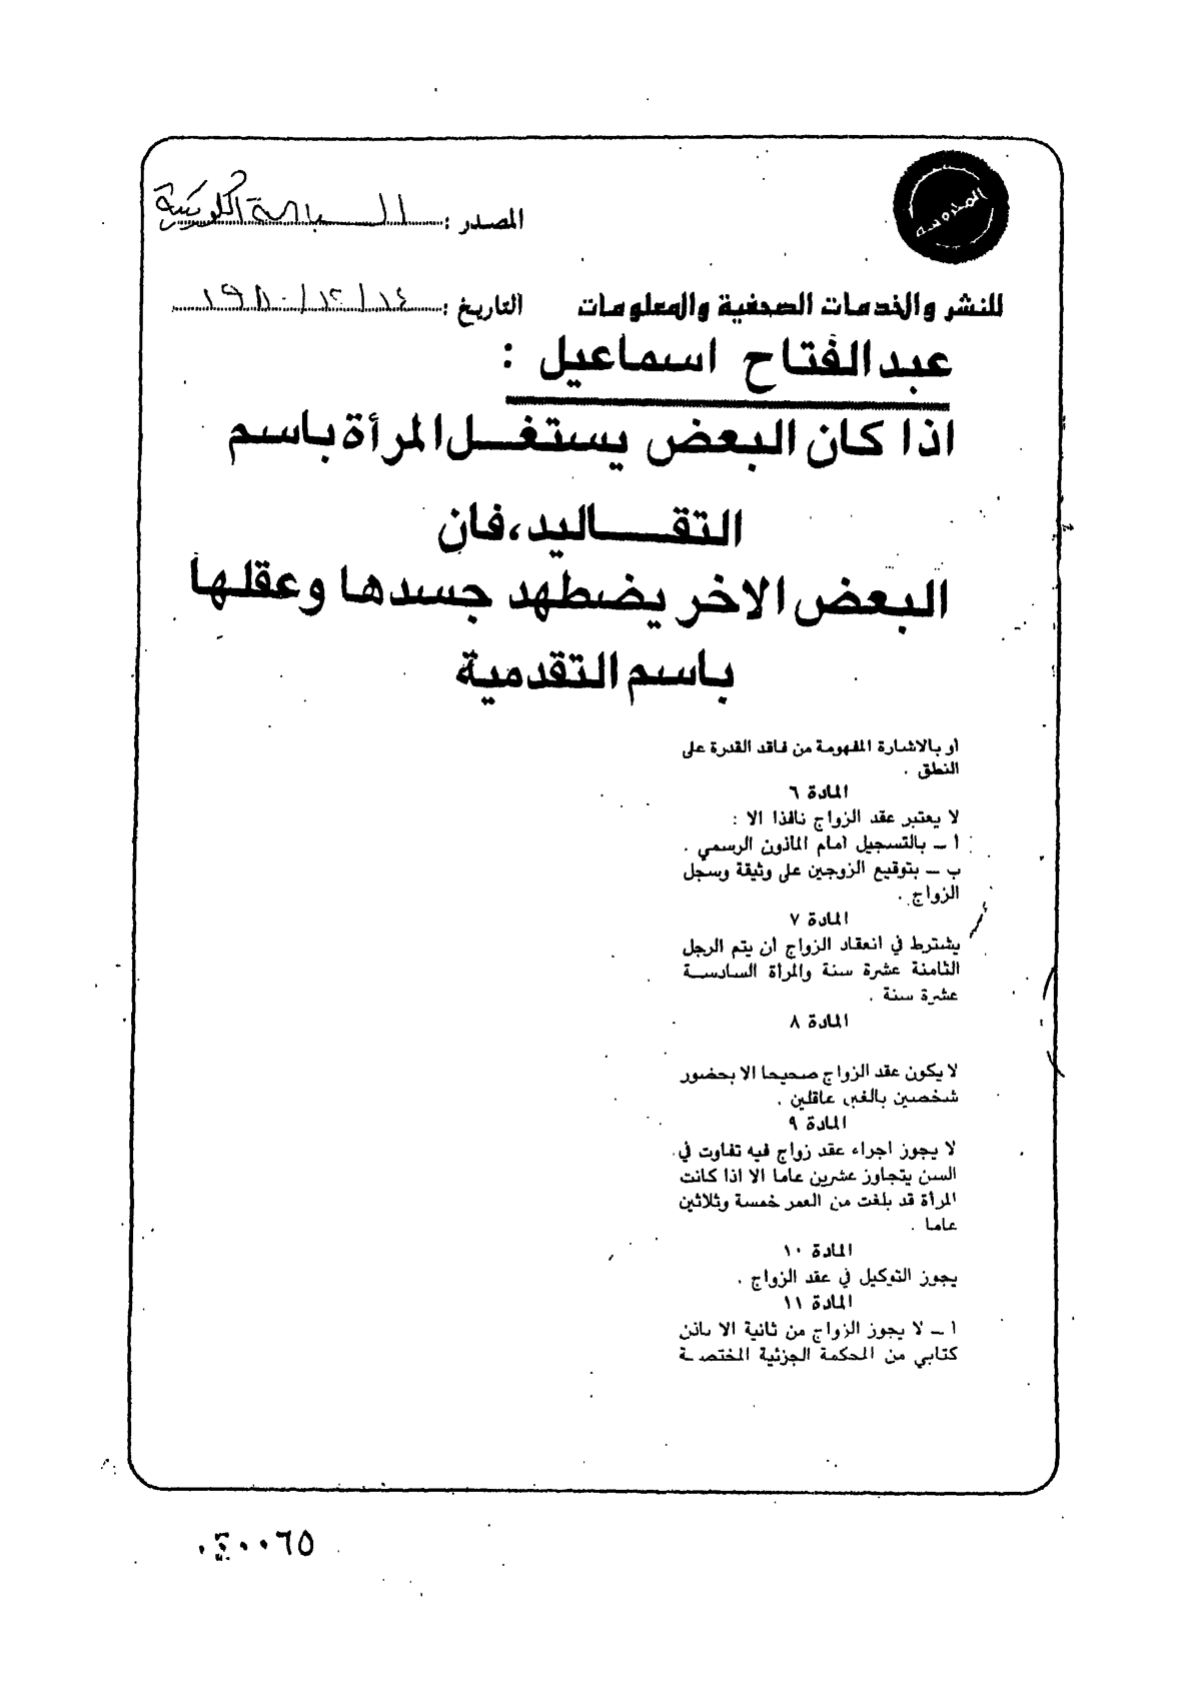 المصدر : السياسة الكويتية
المحروسة
للنشر والخدمات الصحفية والمعلومات
التاريخ : ١٤/١٢/١٩٨٠
عبدالفتاح اسماعيل :
اذا كان البعض يستغل المرأة باسم
التقاليد، فان
البعض الاخر يضطهد جسدها وعقلها
باسم التقدمية
او بالاشارة المفهومة من فاقد القدرة على
النطق .
المادة ٦
لا يعتبر عقد الزواج نافذا الا :
ا ــ بالتسجيل امام المأذون الرسمي .
ب ــ بتوقيع الزوجين على وثيقة وسجل
الزواج .
المادة ٧
يشترط في انعقاد الزواج ان يتم الرجل
الثامنة عشرة سنة والمرأة السادسة
عشرة سنة .
المادة ٨
لا يكون عقد الزواج صحيحا الا بحضور
شخصين بالغين عاقلين .
المادة ٩
لا يجوز اجراء عقد زواج فيه تفاوت في
السن يتجاوز عشرين عاما الا اذا كانت
المرأة قد بلغت من العمر خمسة وثلاثين
عاما .
المادة ١٠
يجوز التوكيل في عقد الزواج .
المادة ١١
ا ــ لا يجوز الزواج من ثانية الا باذن
كتابي من المحكمة الجزئية المختصة